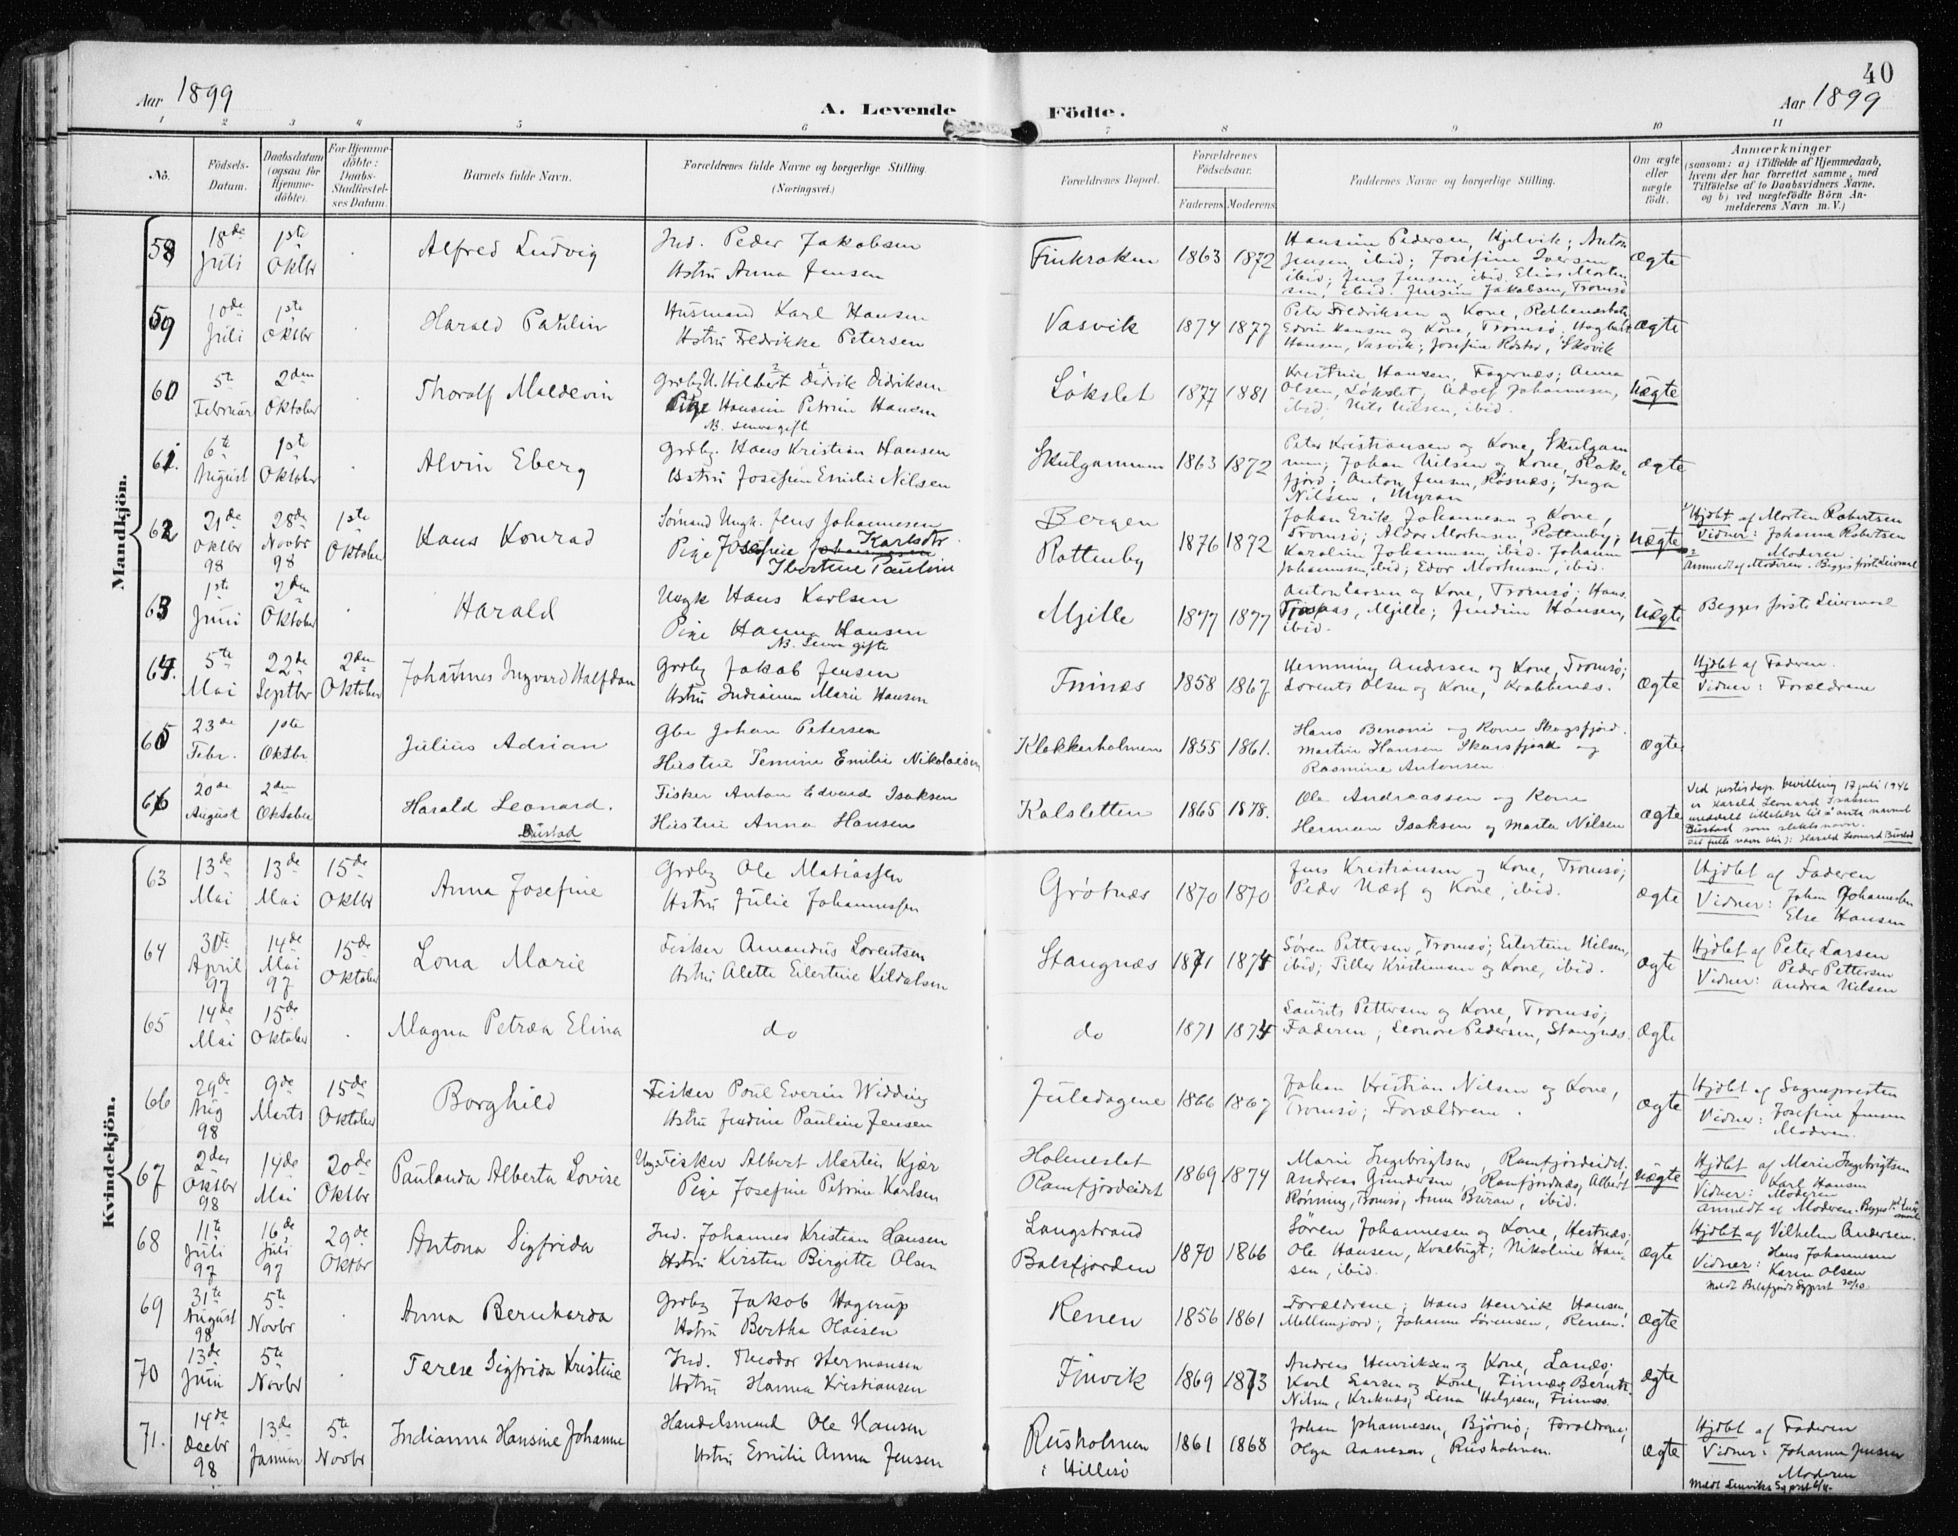 40
Aar 1899
A. Levende Födte.
Aar 1899
1 2 3 4 5 6 7 8 9 10 11
No.
Födsels-Datum.
Daabsdatum (ogsaa for Hjemme-döbte).
For Hjemme-döbte: Daabs-Stadfæstel-ses Datum.
Barnets fulde Navn.
Forældrenes fulde Navne og borgerlige Stilling.
(Næringsvei.)
Forældrenes Bopæl.
Forældrenes Födselsaar.
Faderens Moderens
Faddernes Navne og borgerlige Stilling.
Om ægte eller uægte födt.
Anmærkninger
(saasom: a) i Tilfælde af Hjemmedaab,
hvem der har forrettet samme, med
Tilföielse af to Daabsvidners Navne,
og b) ved uægtefödte Börn An-
melderens Navn m. V.)
Mandkjön.
58 18de Juli 1ste Oktbr Alfred Ludvig
Ind. Peder Jakobsen
Hstru Anna Jensen
Finkroken 1863 1872
Hansine Pedersen, Hjelvik; Anton
Jensen, ibid; Josefine Iversen
ibid; Jens Jensen, ibid, Elias Morten
sen, ibid. Jensine Jakobsen, Tromsø
Ægte
59 10de Juli 1ste Oktbr Harald Paulin
Husmand Karl Hansen
Hstru Fredrikke Petersen
Vasvik 1874 1877
Peter Fredriksen og Kone,
Edvin Hansen og Kone, Tromsø;
Hansen, Vasvik; Josefine
Ægte
60 5te Februar 2den Oktober Thoralf Maldevin
Grdbr. Hilbert Didrik Didriksen
Pige Hansine Petrine Hansen
NB. Senere gifte
Løkslet 1877 1881
Kristine Hansen, Fagernæs; Anna
Olsen, Løkslet, Adolf Johannesen,
ibid; Nils Nilsen, ibid.
Uægte
61. 6te August 1ste Oktober Alvin Eberg
Grdbr. Hans Kristian Hansen
Hstru Josefine Emilie Nilsen
Skulgammen 1863 1872
Peter Kristiansen og Kone, Skulgam
men; Johan Nilsen og Kone, Rak-
fjord; Anton Jensen, Røsnæs; Inga
Nilsen, Myran
Ægte
62 21de Oktbr 98 28de Novbr 98 1ste Oktober Hans Konrad
Sømand Ungk. Jens Johannesen
Pige Josefine Johannesen Karlsdtr.
Ibertine Pauline
Bergen
Rottenby 1876 1872
Johan Erik Johannesen og Kone,
Tromsø; Aldor Mortensen, Rottenby;
Karoline Johannesen, ibid. Johanne
Johannesen, ibid; Edor Mortensen, ibid.
Uægte
Hjdbt af Morten Robertsen
Vidner: Johanna Robertsen
Moderen
Anmeldt af Moderen. Begges første Leiermaal
63 1ste Juni 2den Oktober Harald
Ungk Hans Karlsen
Pige Hanna Hansen
NB. Senere gifte
Mjelle 1877 1877
Anton Larsen og Kone, Tromsø; Hans
Mjelle; Jendine Hansen,
ibid.
Uægte
Begges første Leiermaal
64. 5te Mai 22de Septbr 2den Oktober Johannes Ingvard Halfdan
Grdbr Jakob Jensen
Hstru Indianna Marie Hansen
Finnæs 1858 1867
Hemming Andersen og Kone, Tromsø;
Lorents Olsen og Kone, Krabbenæs.
Ægte
Hjdbt af Faderen.
Vidner: Forældrene
65 23de Febr. 1ste Oktbr Julius Adrian
Gbr Johan Petersen
Hustru Temine Emilie Nikolaisen
Klokkerholmen 1855 1861.
Hans Benoni og Kone Skogsfjord.
Martin Hansen Skarsfjord og
Rasmine Antonsen
Ægte
66 20de August 2den Oktober Harald Leonard.
Bustad
Fisker Anton Edvard Isaksen
Hustru Anna Hansen
Kalsletten 1865 1878.
Ole Andreassen og Kone
Herman Isaksen og Marta Nilsen
Ægte
Ved justisdep. bevilling 17 juli 1946
er Harald Leonard Isaksen
meddelt tillatelse til å anta navnet
Bustad som slektsnavn.
Det fulle navn blir: Harald Leonard Bustad
Kvindekjön.
63 13de Mai 13de Mai 15de Oktbr Anna Josefine
Grdbr Ole Matiassen
Hstru Julie Johannessen
Grøtnæs 1870 1870
Jens Kristiansen og Kone, Tromsø;
Peder Næss og Kone, ibid.
Ægte
Hjdbt af Faderen
Vidner: Johan Johannesen
Else Hansen
64 30te April 97 14de Mai 97 15de Oktober Lona Marie
Fisker Amandus Lorentsen
Hstru Alette Eilertine Kildalsen
Stangnæs 1871 1874
Søren Pettersen, Tromsø; Eilertine Nilsen,
ibid; Tiller Kristensen og Kone, ibid.
Ægte
Hjdbt af Peter Larsen
Vidner: Peder Pettersen
Andrea Nilsen
65 14de Mai 15de Oktober Magna Petræa Elina
do
do 1871 1874
Laurits Pettersen og Kone, Tromsø;
Faderen, Leonore Pedersen, Stangnæs.
Ægte
66 29de Aug 98 9de Marts 15de Oktober Borghild
Fisker Poul Everin Widding
Hstru Jendine Pauline Jensen
Juledagene 1866 1867
Johan Kristian Nilsen og Kone,
Tromsø; Forældrene.
Ægte
Hjdbt af Sognepresten
Vidner: Josefine Jensen
Moderen.
67 2den Oktbr 98 14de Mai 20de Oktbr Paulanda Alberta Lovise
Ungk Fisker Albert Martin Kjær
Pige Josefine Petrine Karlsen
Holmeslet
Ramfjordeidet 1869 1874
Marie Ingebrigtsen, Ramfjordeidet;
Andreas Gundersen, Ramfjordnæs; Albert
Rønning, Tromsø; Anna Buran, ibid.
Uægte
Hjdbt af Marie Ingebrigtsen
Vidner: Karl Hansen
Moderen
Anmeldt af Moderen. Begges 1ste Leiermaal
68 11te Juli 97 16de Juli 97 29de Oktbr Antona Sigfrida
Ind. Johannes Kristian Hansen
Hstru Kirsten Birgitte Olsen
Langstrand
Balsfjorden 1870 1866
Søren Johannesen og Kone, Hestnæs;
Ole Hansen, Kvalbugt; Nikoline Han-
sen, ibid.
Ægte
Hjdbt af Vilhelm Andersen.
Vidner: Hans Johannesen
Karen Olsen
Meldt Balsfjords Sgprst 30/10
69 31te August 98 5te Novbr Anna Bernharda
Grdbr Jakob Hagerup
Hstru Bertha Olaisen
Renen 1856 1861
Forældrene; Hans Henrik Hansen,
Mellemjord; Johanne Sørensen, Renen.
Ægte
70 13de Juni 5te Novbr Terese Sigfrida Kristine
Ind. Theodor Hermansen
Hstru Hanna Kristiansen
Finvik 1869 1873
Andreas Henriksen og Kone, Lanæs;
Karl Larsen og Kone, Finnæs; Bernt
Nilsen, Kreknæs; Lena Helgesen, Finnæs.
Ægte
71. 14de Decbr 98 13de Januar 5te Novbr Indianna Hansine Johanne
Handelsmand Ole Hansen
Hstru Emilie Anna Jensen
Rusholmen
i Hillesø 1861 1868
Johan Johannesen, Bjørnø; Forældrene;
Olga Aanesen, Rusholmen.
Ægte
Hjdbt af Faderen
Vidner: Johanna Jensen
Moderen
Meldt Lenviks Sgprst